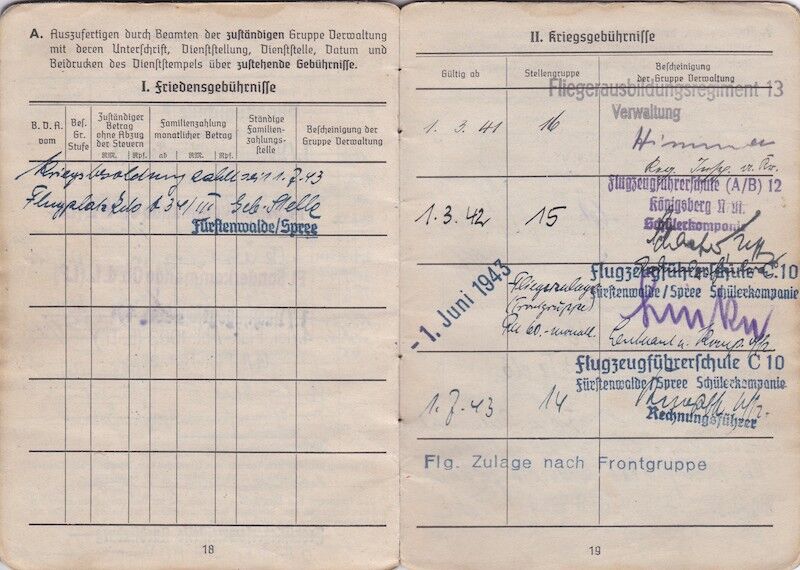 A. Auszufertigen durch Beamten der zuständigen Gruppe Verwaltung
mit deren Unterschrift, Dienststellung, Dienststelle, Datum und
Beidrucken des Dienststempels über zustehende Gebührnisse.
I. Friedensgebührnisse
B. D. A. vom
Bes. Gr. Stufe
Zuständiger Betrag ohne Abzug der Steuern
RM. Rpf.
Familienzahlung monatlicher Betrag
ab RM. Rpf.
Ständige Familienzahlungsstelle
Bescheinigung der Gruppe Verwaltung
Kriegsbesoldung zahlt seit 1.7.43
Flugplatz Kdo A 34/III Geb. Stelle
Fürstenwalde/Spree
18
II. Kriegsgebührnisse
Gültig ab
Stellengruppe
Bescheinigung der Gruppe Verwaltung
Fliegerausbildungsregiment 13
Verwaltung
1. 3. 41 16
Flugzeugführerschule (A/B) 12
Königsberg N. M.
Schülerkompanie
1. 3. 42 15
Flugzeugführerschule C 10
Fürstenwalde/Spree Schülerkompanie
- 1. Juni 1943
Fliegerzulage
(Frontgruppe)
RM 60.- monatl.
Flugzeugführerschule C 10
Fürstenwalde/Spree Schülerkompanie
1. 7. 43 14
Rechnungsführer
Flg. Zulage nach Frontgruppe
19